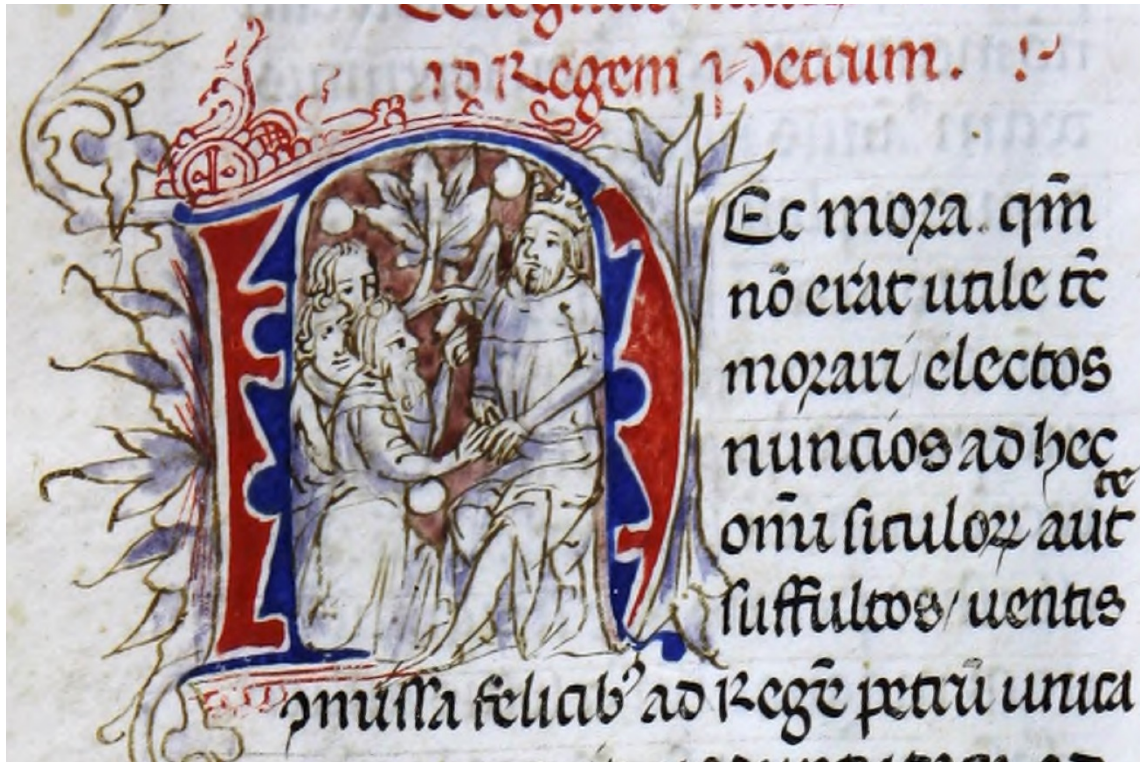 ad Regem Petrum.
Ec mora. qm̄
nō erat utile tc̄
morari / electos
nuncios ad hec
om̄i siculoꝝ auctͨte
suffultos / uentis
ꝯmissa felicibꝰ ad Regē petrū unica